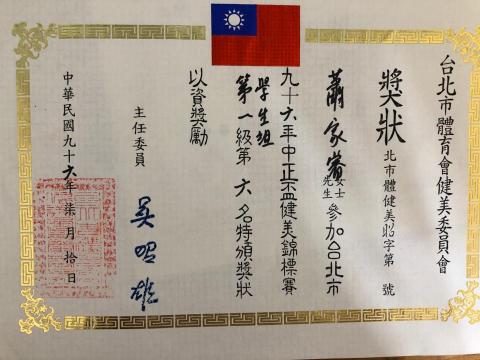 台北市體育會健美委員會
獎狀 北市體健美昭字第 號
蕭家 女士 先生 參加台北市
九十六年中正盃健美錦標賽
學生組
第一級第六名特頒獎狀
以資獎勵
主任委員 吳昭雄
中華民國九十六年柒月拾日